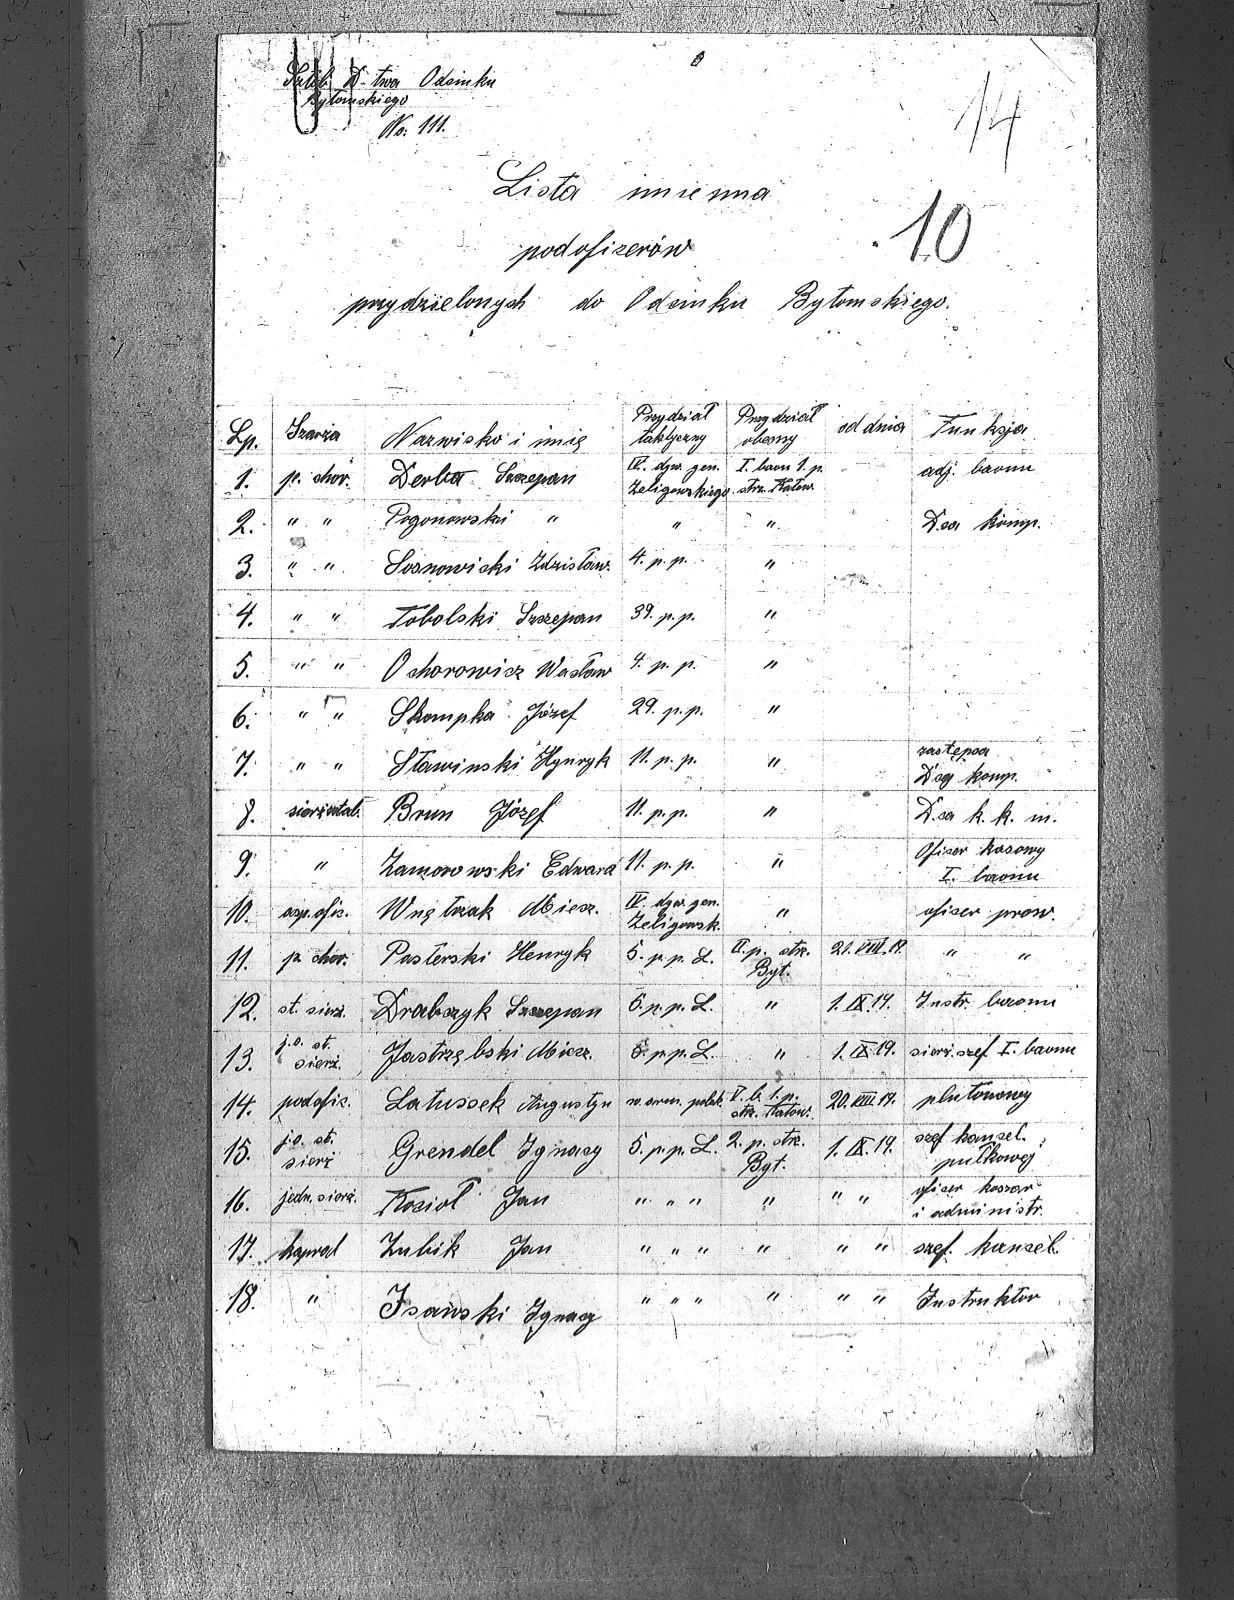 Sztab D-twa Odcinku
Bytomskiego
No. 111.
14
10
Lista imienna
podoficerów
przydzielonych do Odcinku Bytomskiego.
Lp. Szarża Nazwisko i imię Przydział taktyczny Przydział obecny od dnia Funkcja
1. p. chor. Derba Szczepan IV. dyw. gen. Żeligowskiego I. baon 1. p. strz. Katow. adj. baonu
2. " " Pogonowski " " " D-ca komp.
3. " " Sosnowicki Zdzisław. 4. p. p. "
4. " " Tobolski Szczepan 39. p. p. "
5. " " Ochorowicz Wacław 4. p. p. "
6. " " Skompka Józef 29. p. p. "
7. " " Sławinski Hynryk 11. p. p. " zastępca D-cy komp.
8. sierż. sztab. Brun Józef 11. p. p. " D-ca k. k. m.
9. " Zamorowski Edward 11. p. p. " Oficer kasowy I. baonu
10. asp. ofic. Wnętrzak Miecz. IV. dyw. gen. Żeligowsk. " oficer prow.
11. p. chor. Pasterski Henryk 5. p. p. L. II. p. strz. Byt. 21. VIII. 19. " "
12. st. sierż. Drabczyk Szczepan 5. p. p. L. " 1. IX. 19. Instr. baonu
13. j. o. st. sierż. Jastrzębski Miecz. 5. p. p. L. " 1. IX. 19. sierż. szef I. baonu
14. podofic. Latussek Augustyn w arm. polsk. V. b. 1. p. strz. Katow. 20. VIII. 19. plutonowy
15. j. o. st. sierż Grendel Ignacy 5. p. p. L. 2. p. strz. Byt. 1. IX. 19. szef kancel. pułkowej
16. jedn. sierż. Kozioł Jan " " " " " " oficer koszar i administr.
17. kapral Zubik Jan " " " " " " szef. kancel.
18. " Isawski Ignacy " " " " " " Instruktor